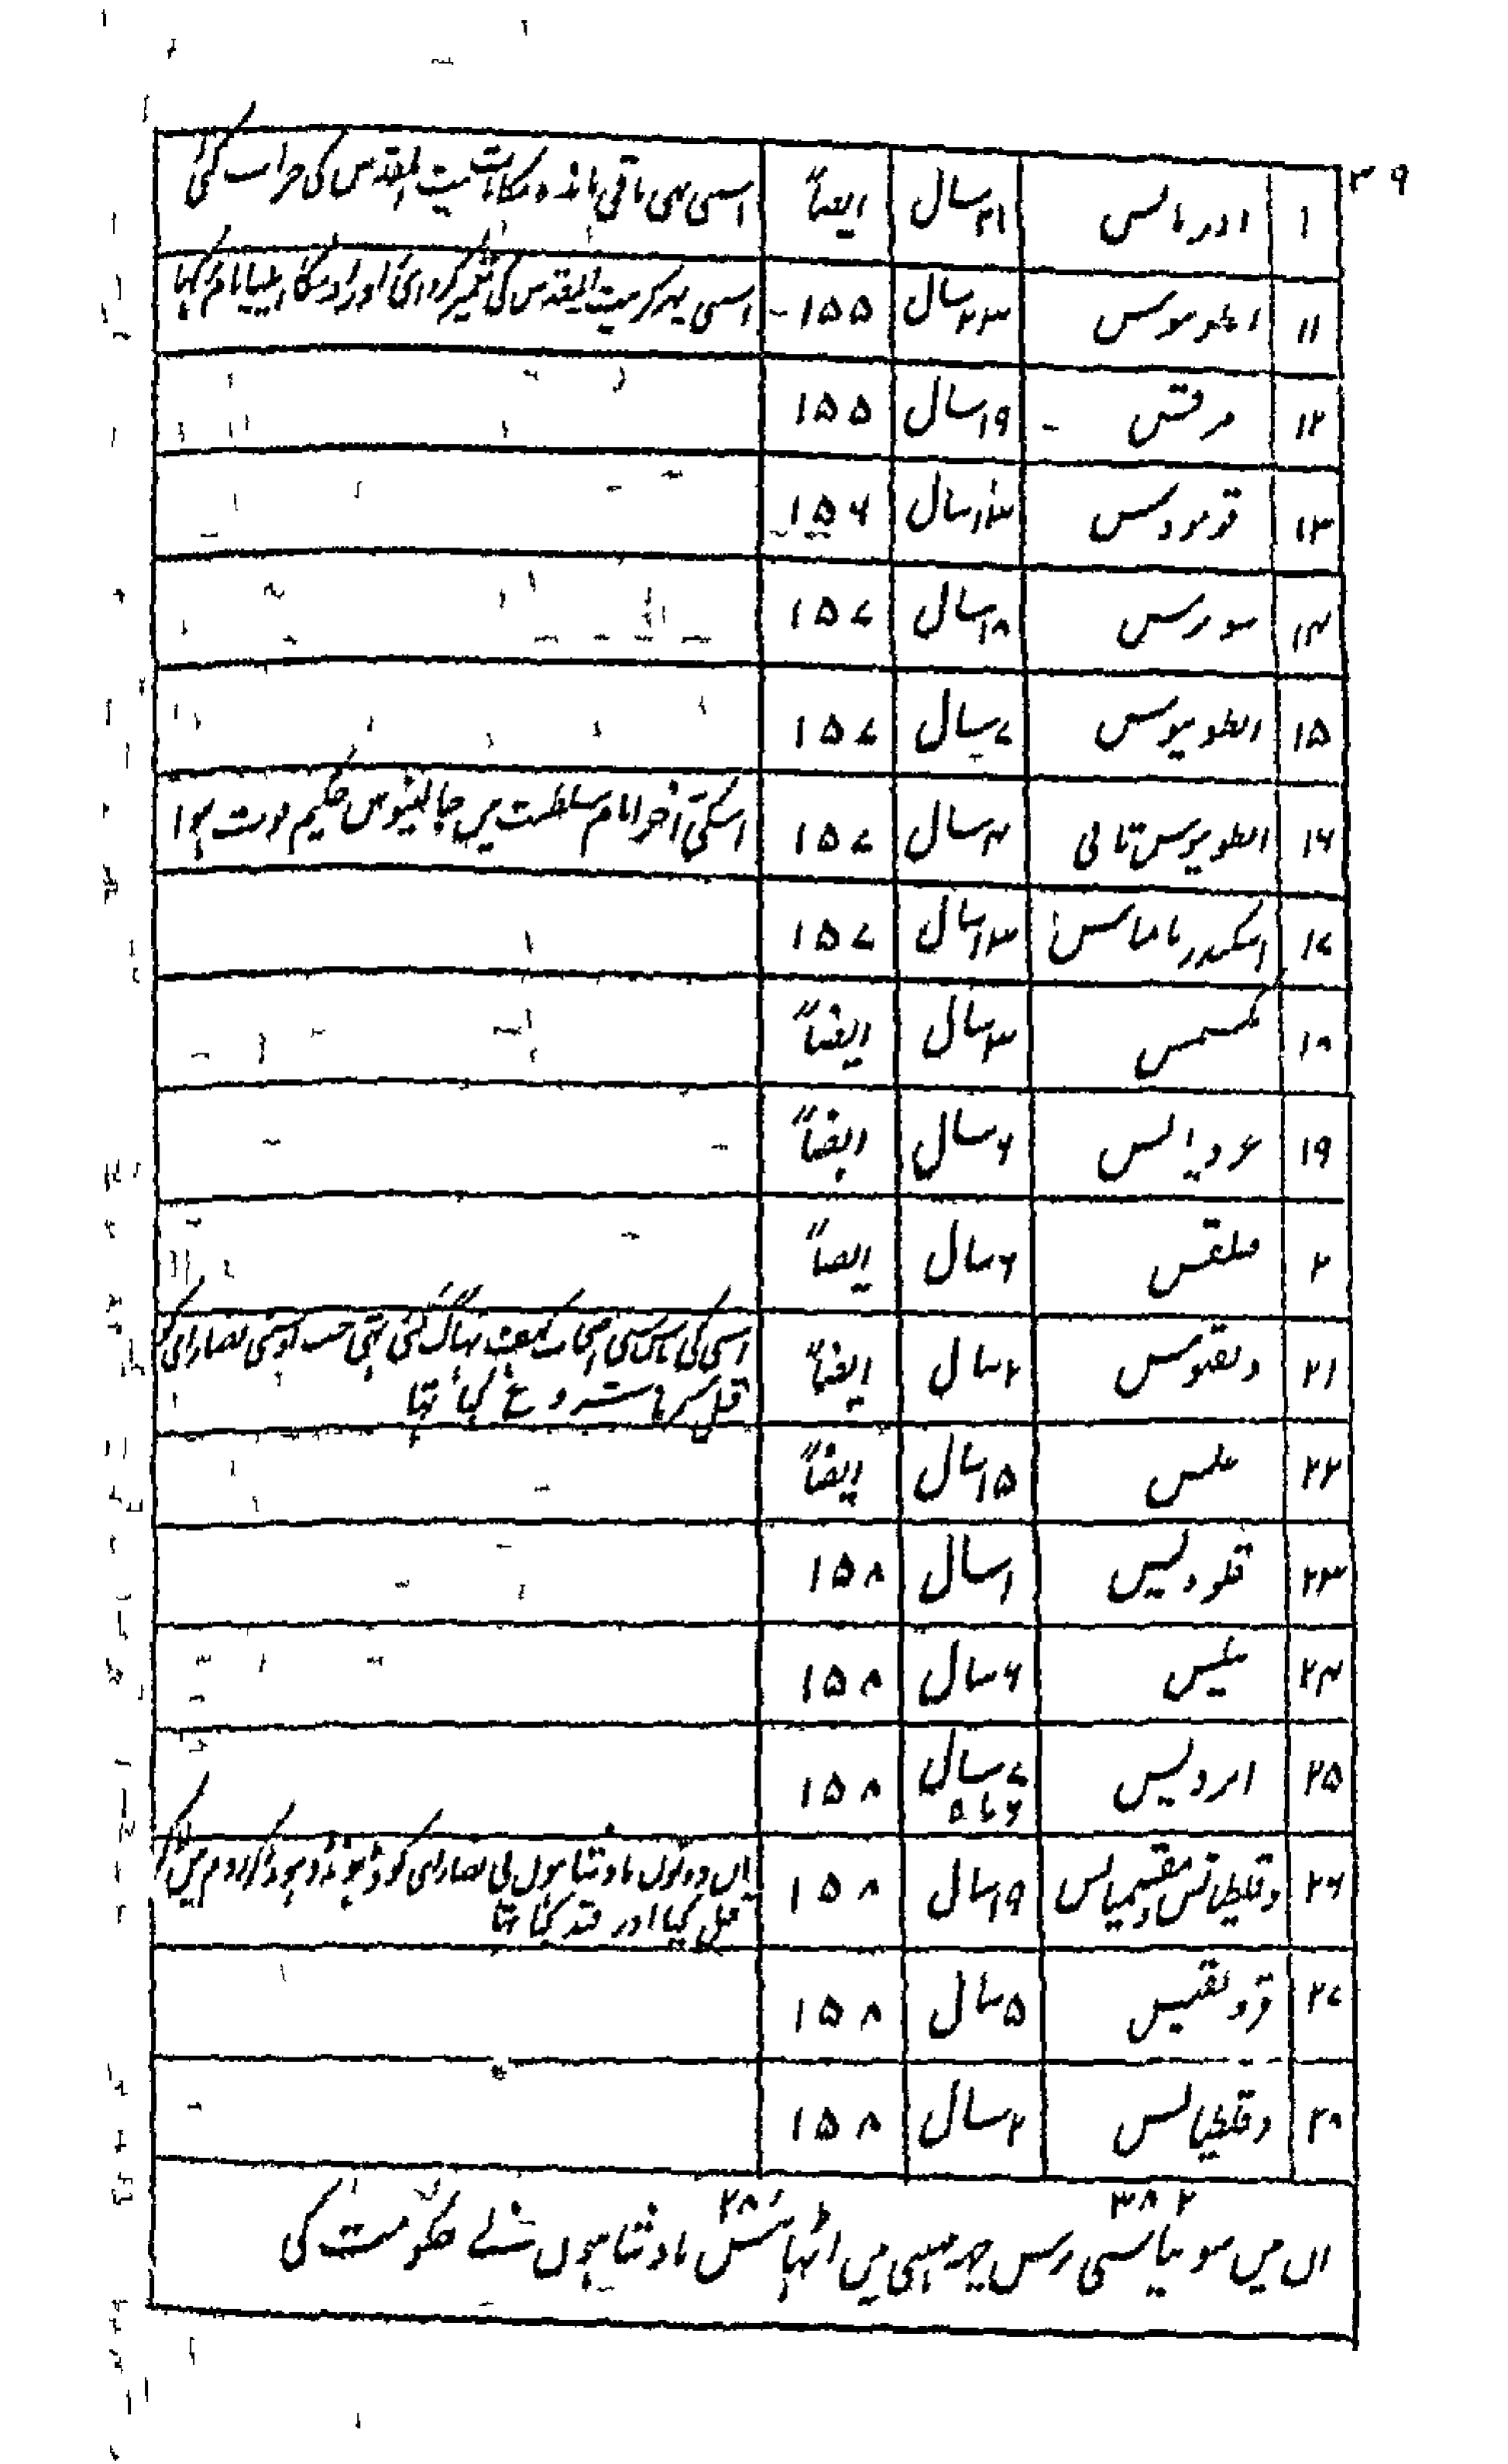 ۳۹
۱ ادریانس ۲۱سال ایضاً اسی نی باقی ماندہ مکانات بیت المقدس کی خراب کئی
۱۱ انطونیوس ۲۳سال ۱۵۵ اسی پہر کر بیت المقدس کی تعمیر کروائی اور اوسکا ایلیا نام رکہا
۱۲ مرقس ۱۹سال ۱۵۵
۱۳ قومودس ۱۳سال ۱۵۶
۱۴ سورس ۱۸سال ۱۵۷
۱۵ انطونیوس ۷سال ۱۵۷
۱۶ انطونیوس ثانی ۴سال ۱۵۷ اسکی آخر ایام سلطنت میں جالینوس حکیم فوت ہوا
۱۷ اسکندر مامیاس ۱۳سال ۱۵۷
۱۸ مکسمس ۳سال ایضاً
۱۹ غردیانس ۶سال ایضاً
۲ فیلقس ۶سال ایضاً
۲۱ دیقیوس ۲سال ایضاً اسی کی پاس سی اصحاب کہف بہاگ گئی تہی جب اوسنی نصارای کو
قتل کرنا شروع کیا تہا
۲۲ ۱۵سال ایضاً
۲۳ قلودیس ۱سال ۱۵۸
۲۴ ۶سال ۱۵۸
۲۵ ۷سال ۱۵۸
۲۶ دقلطیانس و مقسیمیانس ۱۹سال ۱۵۸ ان دونوں بادشاہوں نی نصارای کو ڈہونڈہ ڈہونڈہ کر روم میں
قتل کیا اور قید کیا تہا
۲۷ ۵سال ۱۵۸
۲۸ دقلطیانس ۲سال ۱۵۸
۳۸۲ ۲۸
ان میں سو بیاسی برس چہ مہینی میں اٹہائیس بادشاہوں نے حکومت کی